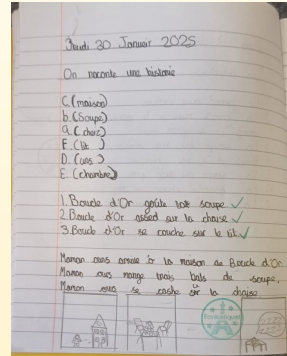 Jeudi 30 Janvier 2025
On raconte une histoire
C. (maison)
b. (Soupe)
a. (chaiz)
F. (lit )
D. (ours )
E. (chambre)
1. Boucle d'Or goûte trois soupe ✓
2. Boucle d'Or assed sur la chaise ✓
3. Boucle d'Or se couche sur le lit ✓
Maman ours arrive à la maison de Boucle d'Or.
Maman ours mange trois bols de soupe,
Maman ours se cashe sur la chaise